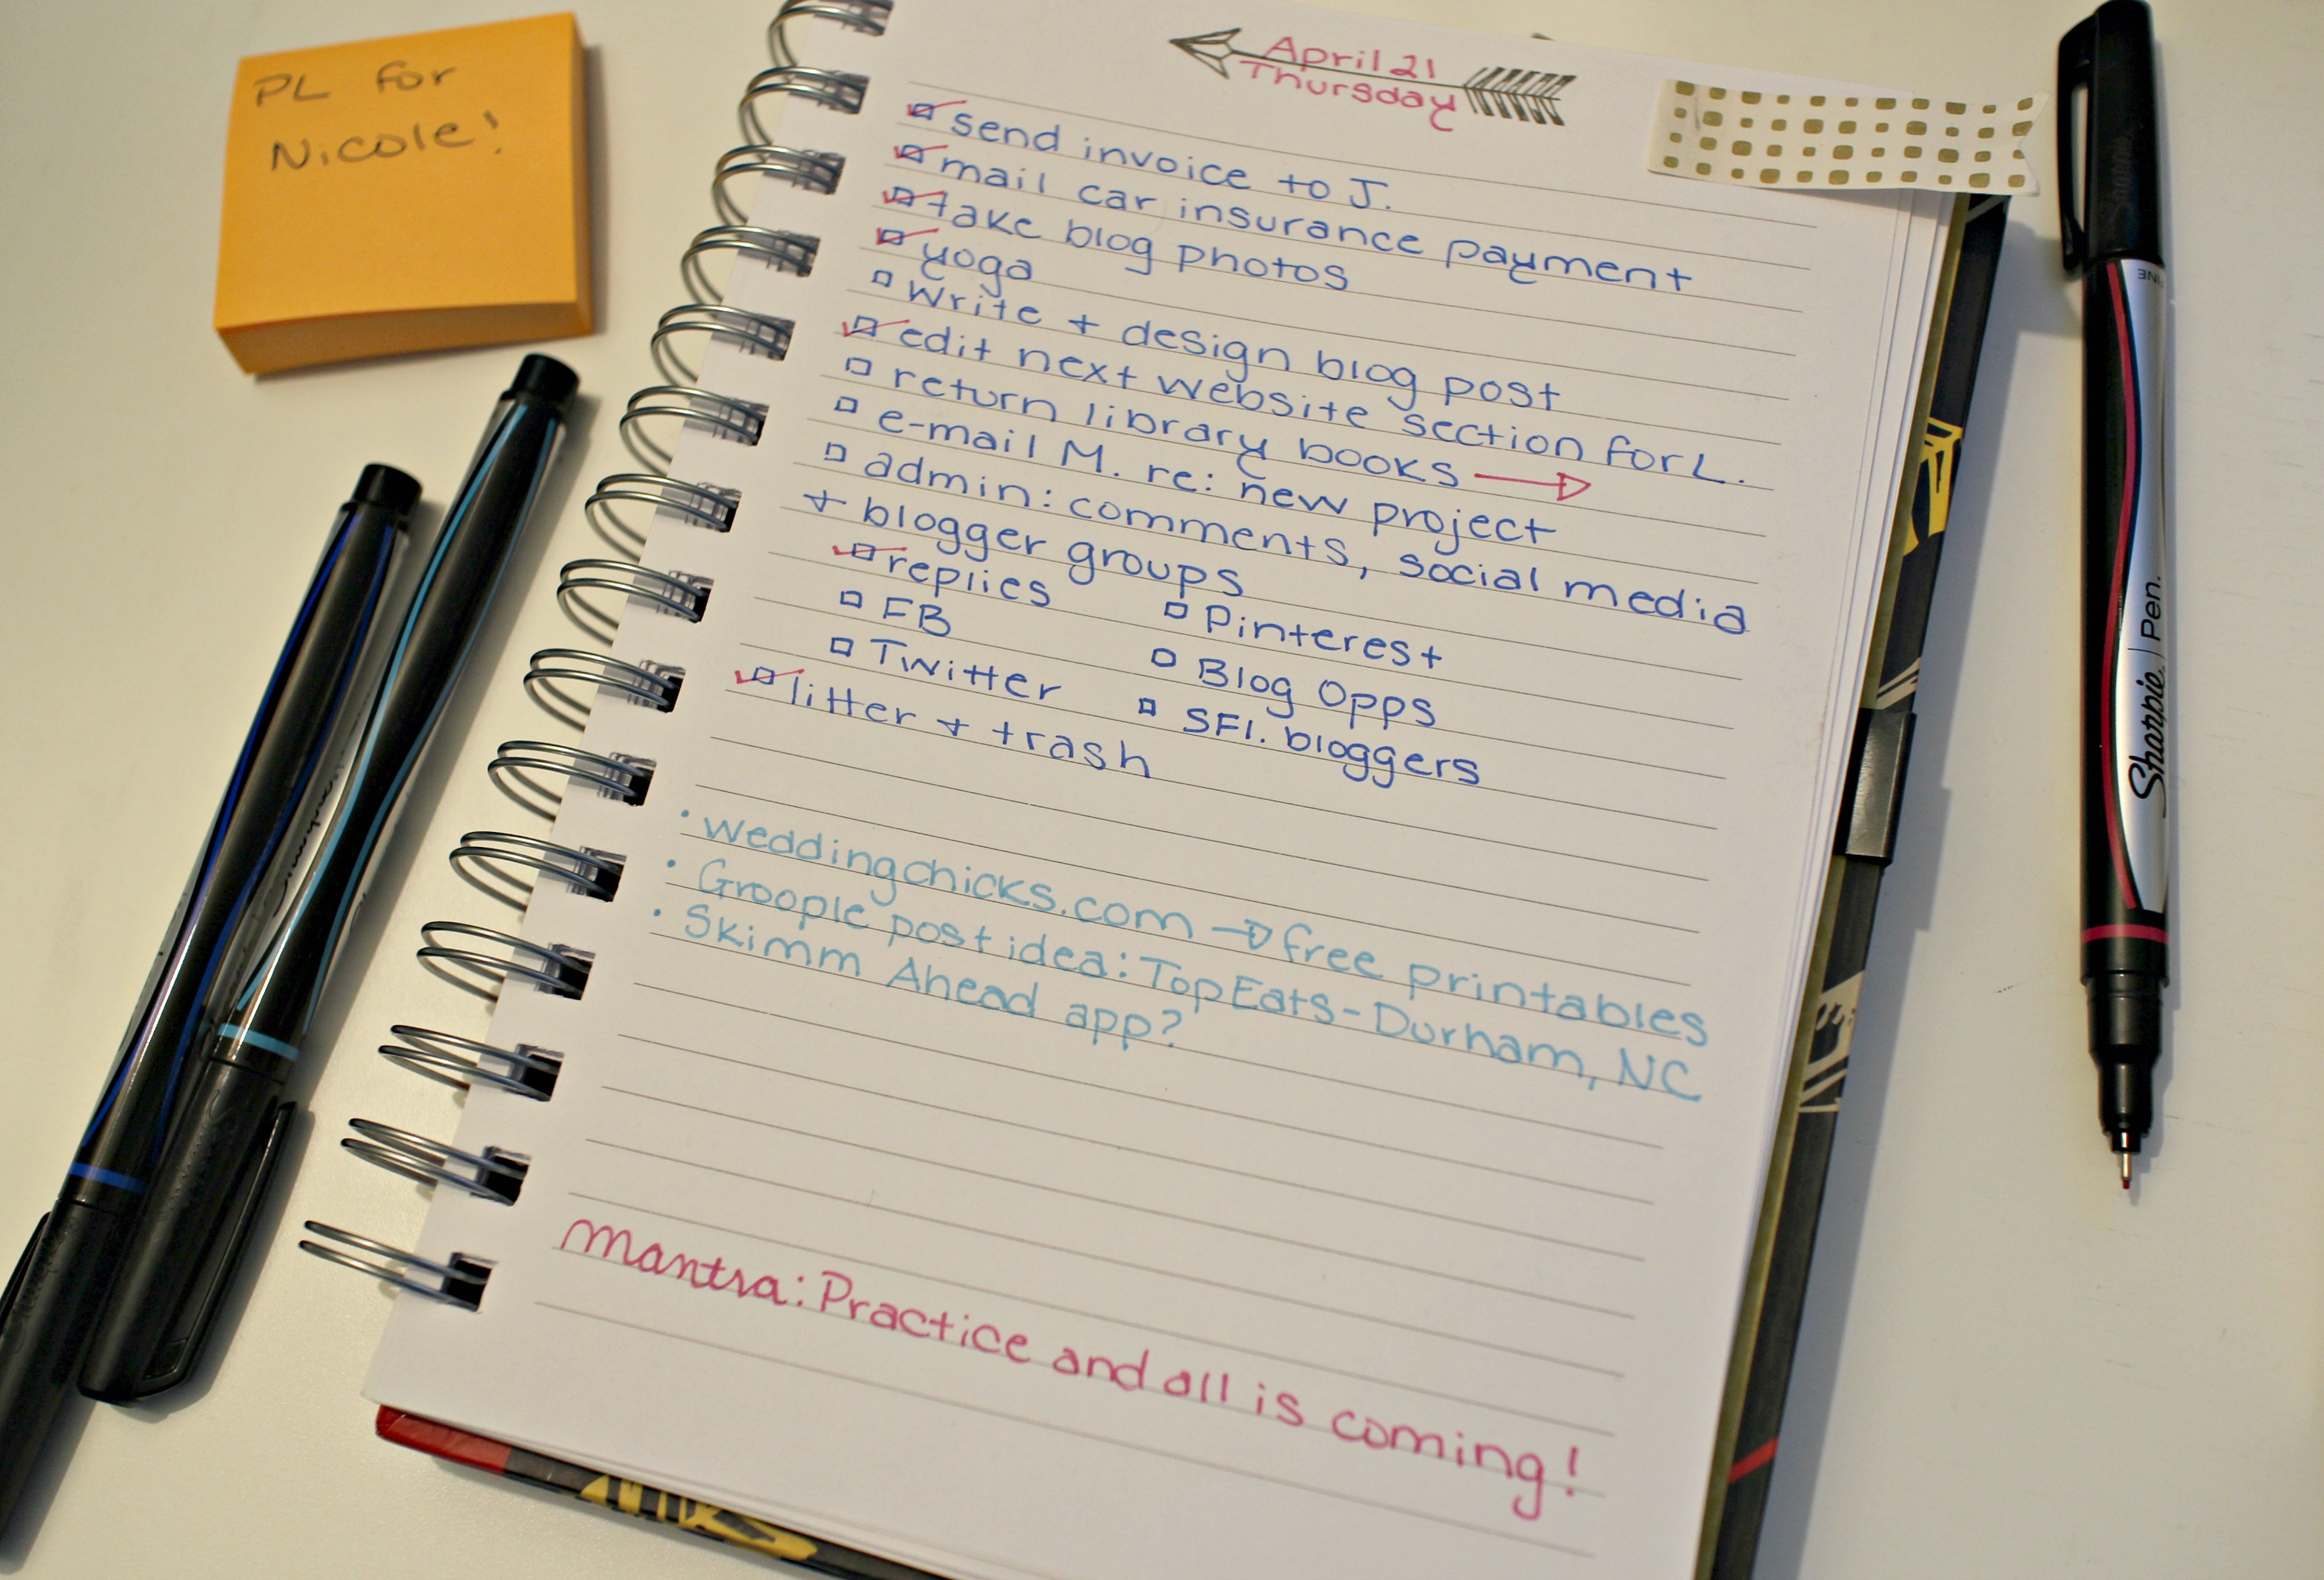 PL for
Nicole!
April 21
Thursday
send invoice to J.
mail car insurance payment
take blog photos
yoga
write + design blog post
edit next website section for L.
return library books
e-mail M. re: new project
admin: comments, social media
+ blogger groups
replies
FB
Pinterest
Twitter
Blog Opps
SFL. bloggers
litter + trash
• weddingchicks.com → free printables
• Groople post idea: Top Eats - Durham, NC
• Skimm Ahead app?
Mantra: Practice and all is coming!
Sharpie | Pen.